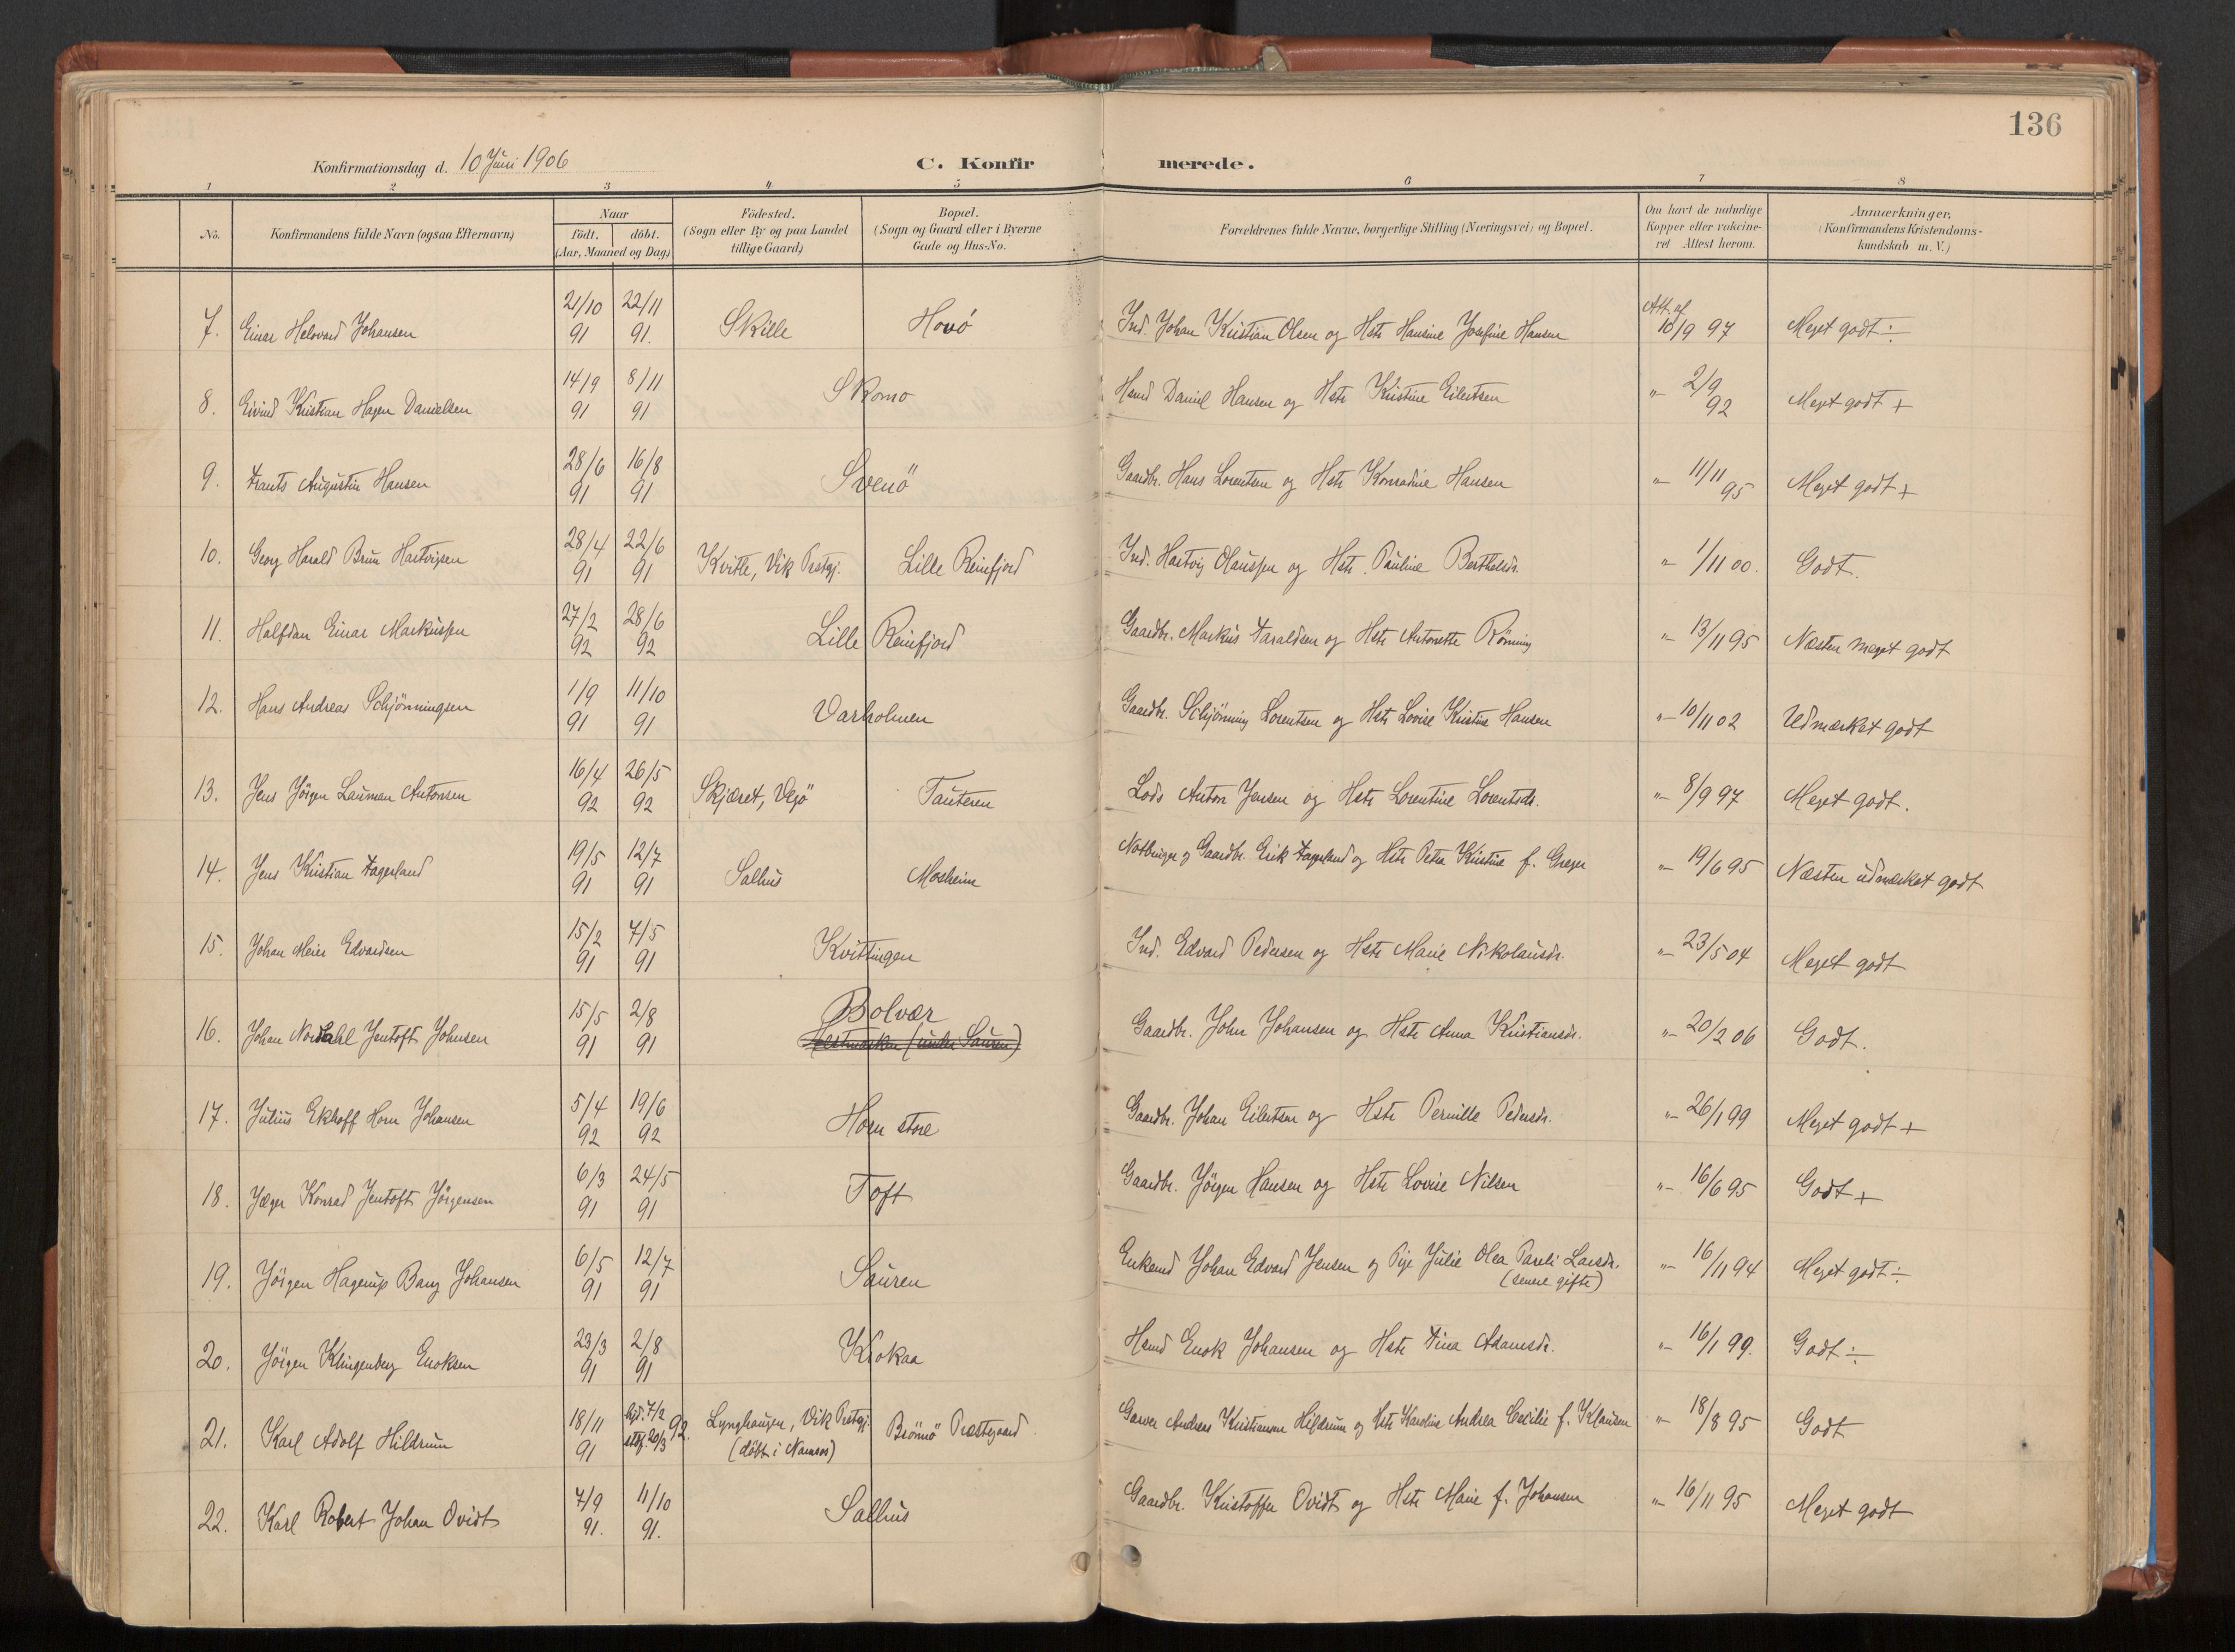 136
Konfirmationsdag d. 10 Juni 1906
C. Konfirmerede.
1 2 3 4 5 6 7 8
No.
Konfirmandens fulde Navn (ogsaa Efternavn)
Naar
født. døbt.
(Aar, Maaned og Dag)
Fødested.
(Sogn eller By og paa Landet
tillige Gaard)
Bopæl.
(Sogn og Gaard eller i Byerne
Gade og Hus-No.
Forældrenes fulde Navne, borgerlige Stilling (Næringsvei) og Bopæl.
Om havt de naturlige
Kopper eller vakcine-
ret Attest herom.
Anmærkninger,
(Konfirmandens Kristendoms-
kundskab m. V.)
7. Einar Helovard Johansen 21/10 91 22/11 91. Skille Hovø Ind. Johan Kristian Olsen og Hstr Hansine Josefine Hansen Att. af 10/9 97 Meget godt ÷
8. Eivind Kristian Hagen Danielsen 14/9 91 8/11 91 Skomo Hsmd Daniel Hansen og Hstr Kristine Eilertsen " 2/9 92 Meget godt +
9. Frants Augustin Hansen 28/6 91 16/8 91 Svenö Gaardbr. Hans Lorentsen og Hstr Konradine Hansen " 11/11 95 Meget godt +
10. Georg Harald Brun Hartvigsen 28/4 91 22/6 91 Kvitle, Vik Prstgj. Lille Reinfjord Ind. Hartvig Olaussen og Hstr. Pauline Berthelsdr. " 1/11 00. Godt.
11. Halfdan Einar Markussen 27/2 92 28/6 92 Lille Reinfjord Gaardbr. Markus Faraldsen og Hstr Antonette Rönning " 13/11 95 Næsten meget godt
12. Hans Andreas Schjönningsen 1/9 91 11/10 91 Varholmen Gaardbr. Schjönning Lorentsen og Hstr Lovise Kristine Hansen " 10/11 02 Udmærket godt
13. Jens Jörgen Lauman Antonsen 16/4 92 26/5 92 Skjæret, Vegö Tauteren Lods Anton Jensen og Hstr Lorentine Lorentsdr. " 8/9 97 Meget godt.
14. Jens Kristian Fagerland 19/5 91 12/7 91 Salhus Mosheim Notbruger og Gaardbr. Erik Fagerland og Hstr Petra Kristine f. Greger " 19/6 95 Næsten udmærket godt
15. Johan Meier Edvardsen 15/2 91 7/5 91 Kvittingen Ind. Edvard Pedersen og Hstr Marie Nikolausdr. " 23/5 04 Meget godt
16. Johan Nordahl Jentoft Johnsen 15/5 91 2/8 91 Bolvær
Vestmarken (under Sauren)
Gaardbr. John Johansen og Hstr Anna Kristiansdr. " 20/2 06 Godt.
17. Julius Ekhoff Horn Johansen 5/4 92 19/6 92 Horn store Gaardbr. Johan Eilertsen og Hstr Pernille Pedersdr. " 26/1 99 Meget godt +
18. Jæger Konrad Jentoft Jörgensen 6/3 91 24/5 91 Toft Gaardbr. Jörgen Hansen og Hstr Lovise Nilsen " 16/6 95 Godt +
19. Jörgen Hagerup Bang Johansen 6/5 91 12/7 91 Sauren Enkemd Johan Edvard Jensen og Pige Julie Olea Pareli Larsdr.
(senere gifte) " 16/11 94 Meget godt ÷
20. Jörgen Klingenberg Enoksen 23/3 91 2/8 91 Krokaa Hsmd Enok Johansen og Hstr Fina Adamsdr. " 16/1 99. Godt ÷
21. Karl Adolf Hildrum 18/11 91 hjd. 7/2 stfj. 20/3 92. Lynghaugen, Vik Prstgj.
(döbt i Namsos) Brönnö Præstegaard Garver Andreas Kristiansen Hildrum og Hstr Karoline Andrea Cecilie f. Klausen " 18/8 95 Godt
22. Karl Robert Johan Ovidt 7/9 91. 11/10 91. Salhus Gaardbr. Kristoffer Ovidt og Hstr Marie f. Johansen " 16/11 95 Meget godt